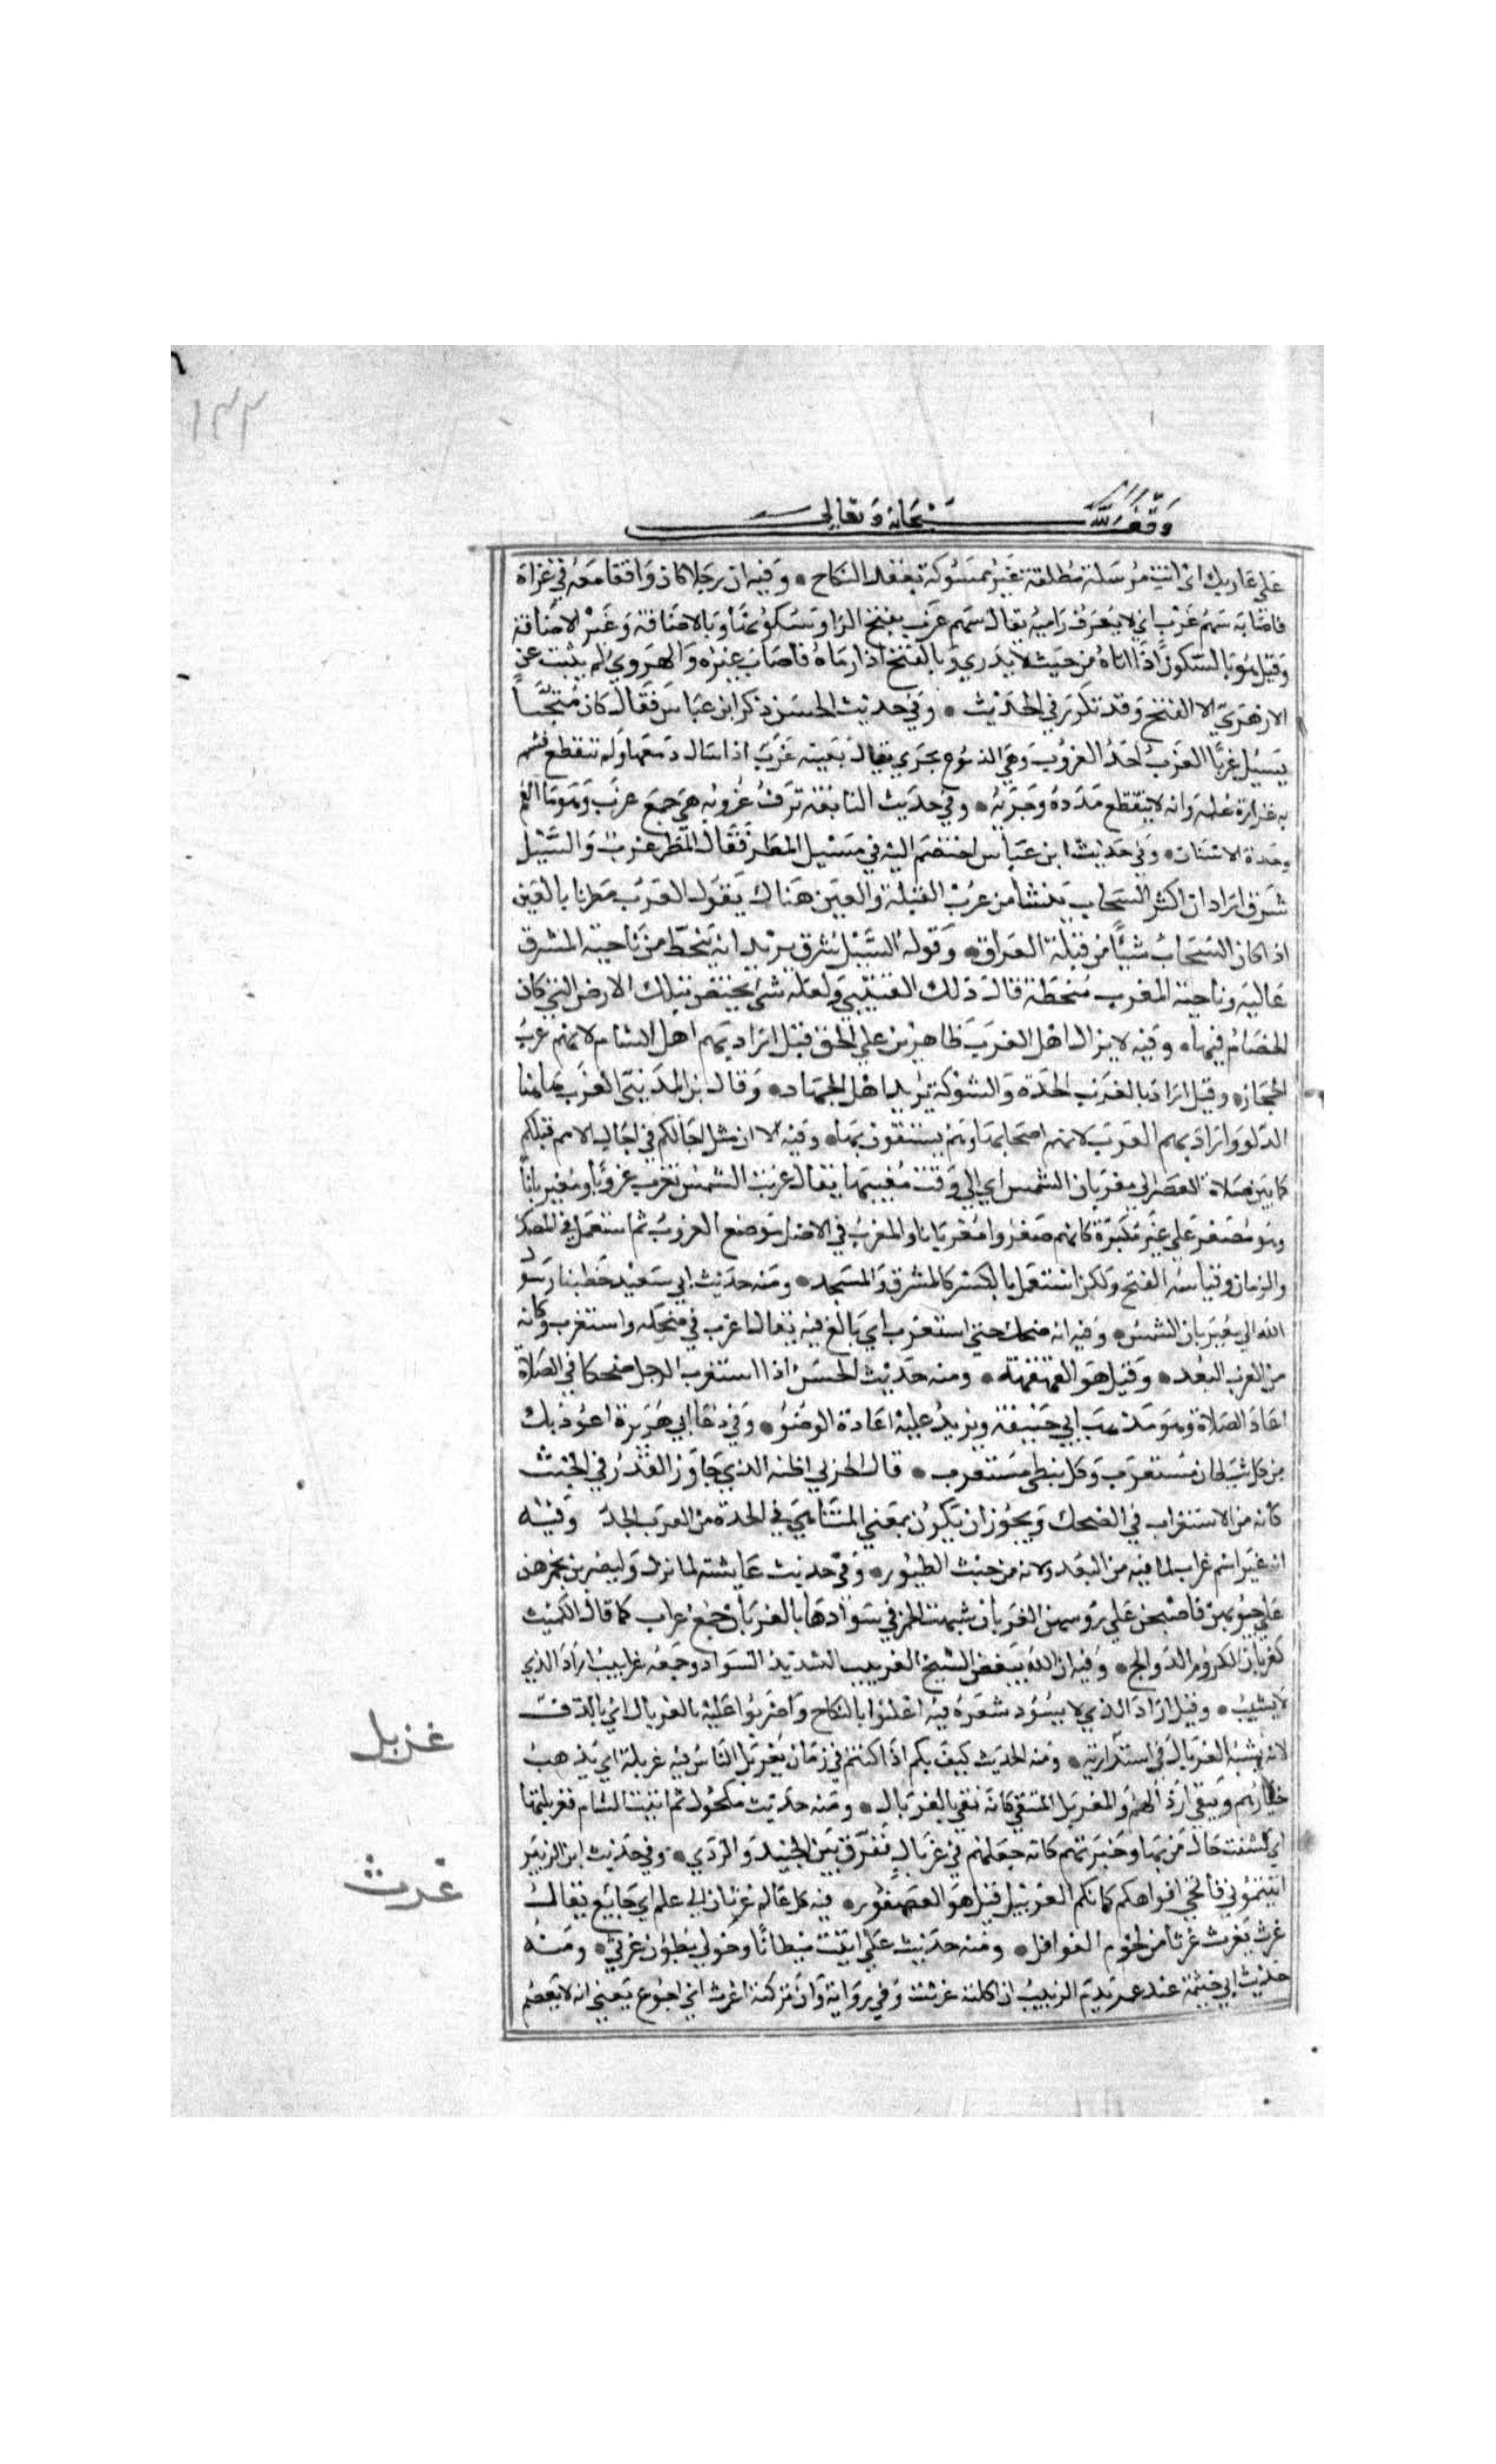 ١٣٣
وقف لله سبحانه وتعالى
على غاربك اى انت مرسلة مطلقة غير ممسوكة بعقد النكاح • وفيه ان رجلا كان واقفا معه في غزاة
فاصابه سهم غرب اي لا يعرف راميه يقال سهم غرب بفتح الرا وسكونها وبالاضافة وغير الاضافة
وقيل هو بالسكون اذا اتاه من حيث لا يدري وبالفتح اذا رماه فاصاب غيره والهروي لم يثبت عن
الازهري الا الفتح وقد تكرر في الحديث • وفي حديث الحسن ذكر ابن عباس فقال كان مثجا
يسيل غربا الغرب احد الغروب وهي الدموع تجري يقال بعينه غرب اذا سال دمعها ولم تنقطع فشبه
به غزارة علمه وانه لا ينقطع مدده وجريه • وفي حديث النابغة ترف غروبه هي جمع غرب وهو ما الفم
وحدة الاسنان • وفي حديث ابن عباس اختصم اليه في مسيل المطر فقال المطر غرب والسيل
شرق اراد ان اكثر السحاب ينشأ من غرب القبلة والعين هناك يقول العرب مطرنا بالعين
اذا كان السحاب شيئا من قبلة العراق • وقوله السيل شرق يريد انه ينحط من ناحية المشرق
عالية وناحية المغرب منحطة قال ذلك القتيبي ولعله شي يختص بتلك الارض التي كان
الخصام فيها • وفيه لا يزال اهل الغرب ظاهرين علي الحق قيل اراد بهم اهل الشام لانهم غرب
الحجاز • وقيل اراد بالغرب الحدة والشوكة يريد اهل الجهاد • وقال ابن المديني الغرب هاهنا
الدلو واراد بهم العرب لانهم اصحابها وهم يستقون بها • وفيه الا ان مثل اجالكم في اجال الامم قبلكم
كما بين صلاة العصر الي مغربان الشمس اي الي وقت مغيبها يقال غربت الشمس تغرب غروبا ومغيربانا
وهو مصغر على غير مكبره كانهم صغروا مغربانا والمغرب في الاصل موضع الغروب ثم استعمل في المصدر
والزمان وقياسه الفتح ولكن استعمل بالكسر كالمشرق والمسجد • ومنه حديث ابي سعيد خطبنا رسول
الله الي مغيربان الشمس • وفيه انه ضحك حتى استغرب اي بالغ فيه يقال اغرب في ضحكه واستغرب وكانه
من الغرب البعد • وقيل هو القهقهة • ومنه حديث الحسن اذا استغرب الرجل ضحكا في الصلاة
اعاد الصلاة وهو مذهب ابي حنيفة ويزيد عليه اعادة الوضوء • وفي دعا ابي هبيرة اعوذ بك
من كل شيطان مستغرب وكل نبطي مستعرب • قال الحربي اظنه الذي جاوز القدر في الخبث
كانه من الاستغراب في الضحك ويجوز ان يكون بمعني المتناهي في الحدة من الغرب الحدة وفيه
انه غير اسم غراب لما فيه من البعد ولانه من خبث الطيور • وفي حديث عايشة لما نزل وليضربن بخمرهن
علي جيوبهن فاصبحن علي روسهن الغربان شبهت الخمر في سوادها بالغربان جمع غراب كما قال الكميت
كغربان الكروم الدوالج • وفيه ان الله يبغض الشيخ الغربيب الشديد السواد وجمعه غرابيب اراد الذي
لا يشيب • وقيل اراد الذي لا يسود شعره فيه اعلنوا بالنكاح واضربوا عليه بالغربال اي بالدف
لانه يشبه الغربال في استدارته • ومنه الحديث كيف بكم اذا كنتم في زمان يغربل الناس فيه غربلة اي يذهب
خيارهم ويبقى ارذالهم والمغربل المنتقي كانه نقي بالغربال • ومنه حديث مكحول ثم اتيت الشام فغربلتها
اي كشفت حال من بها وخبرتهم كانه جعلهم في غربال ففرق بين الجيد والردي • وفي حديث ابن الزبير
اتيتموني فاتحي افواهكم كانكم الغربيل قيل هو العصفور • فيه كل عالم غرثان الي علم اي جايع يقال
غرث يغرث غرثا من لحوم الغوافل • ومنه حديث علي ابيت مبطانا وحولي بطون غرثي • ومنه
حديث ابي خيثمة عند عمر يذم الزبيب ان اكلته غرثت وفي رواية وان تركته اغرث اي اجوع يعني انه لا يعصم
غربل
غرث